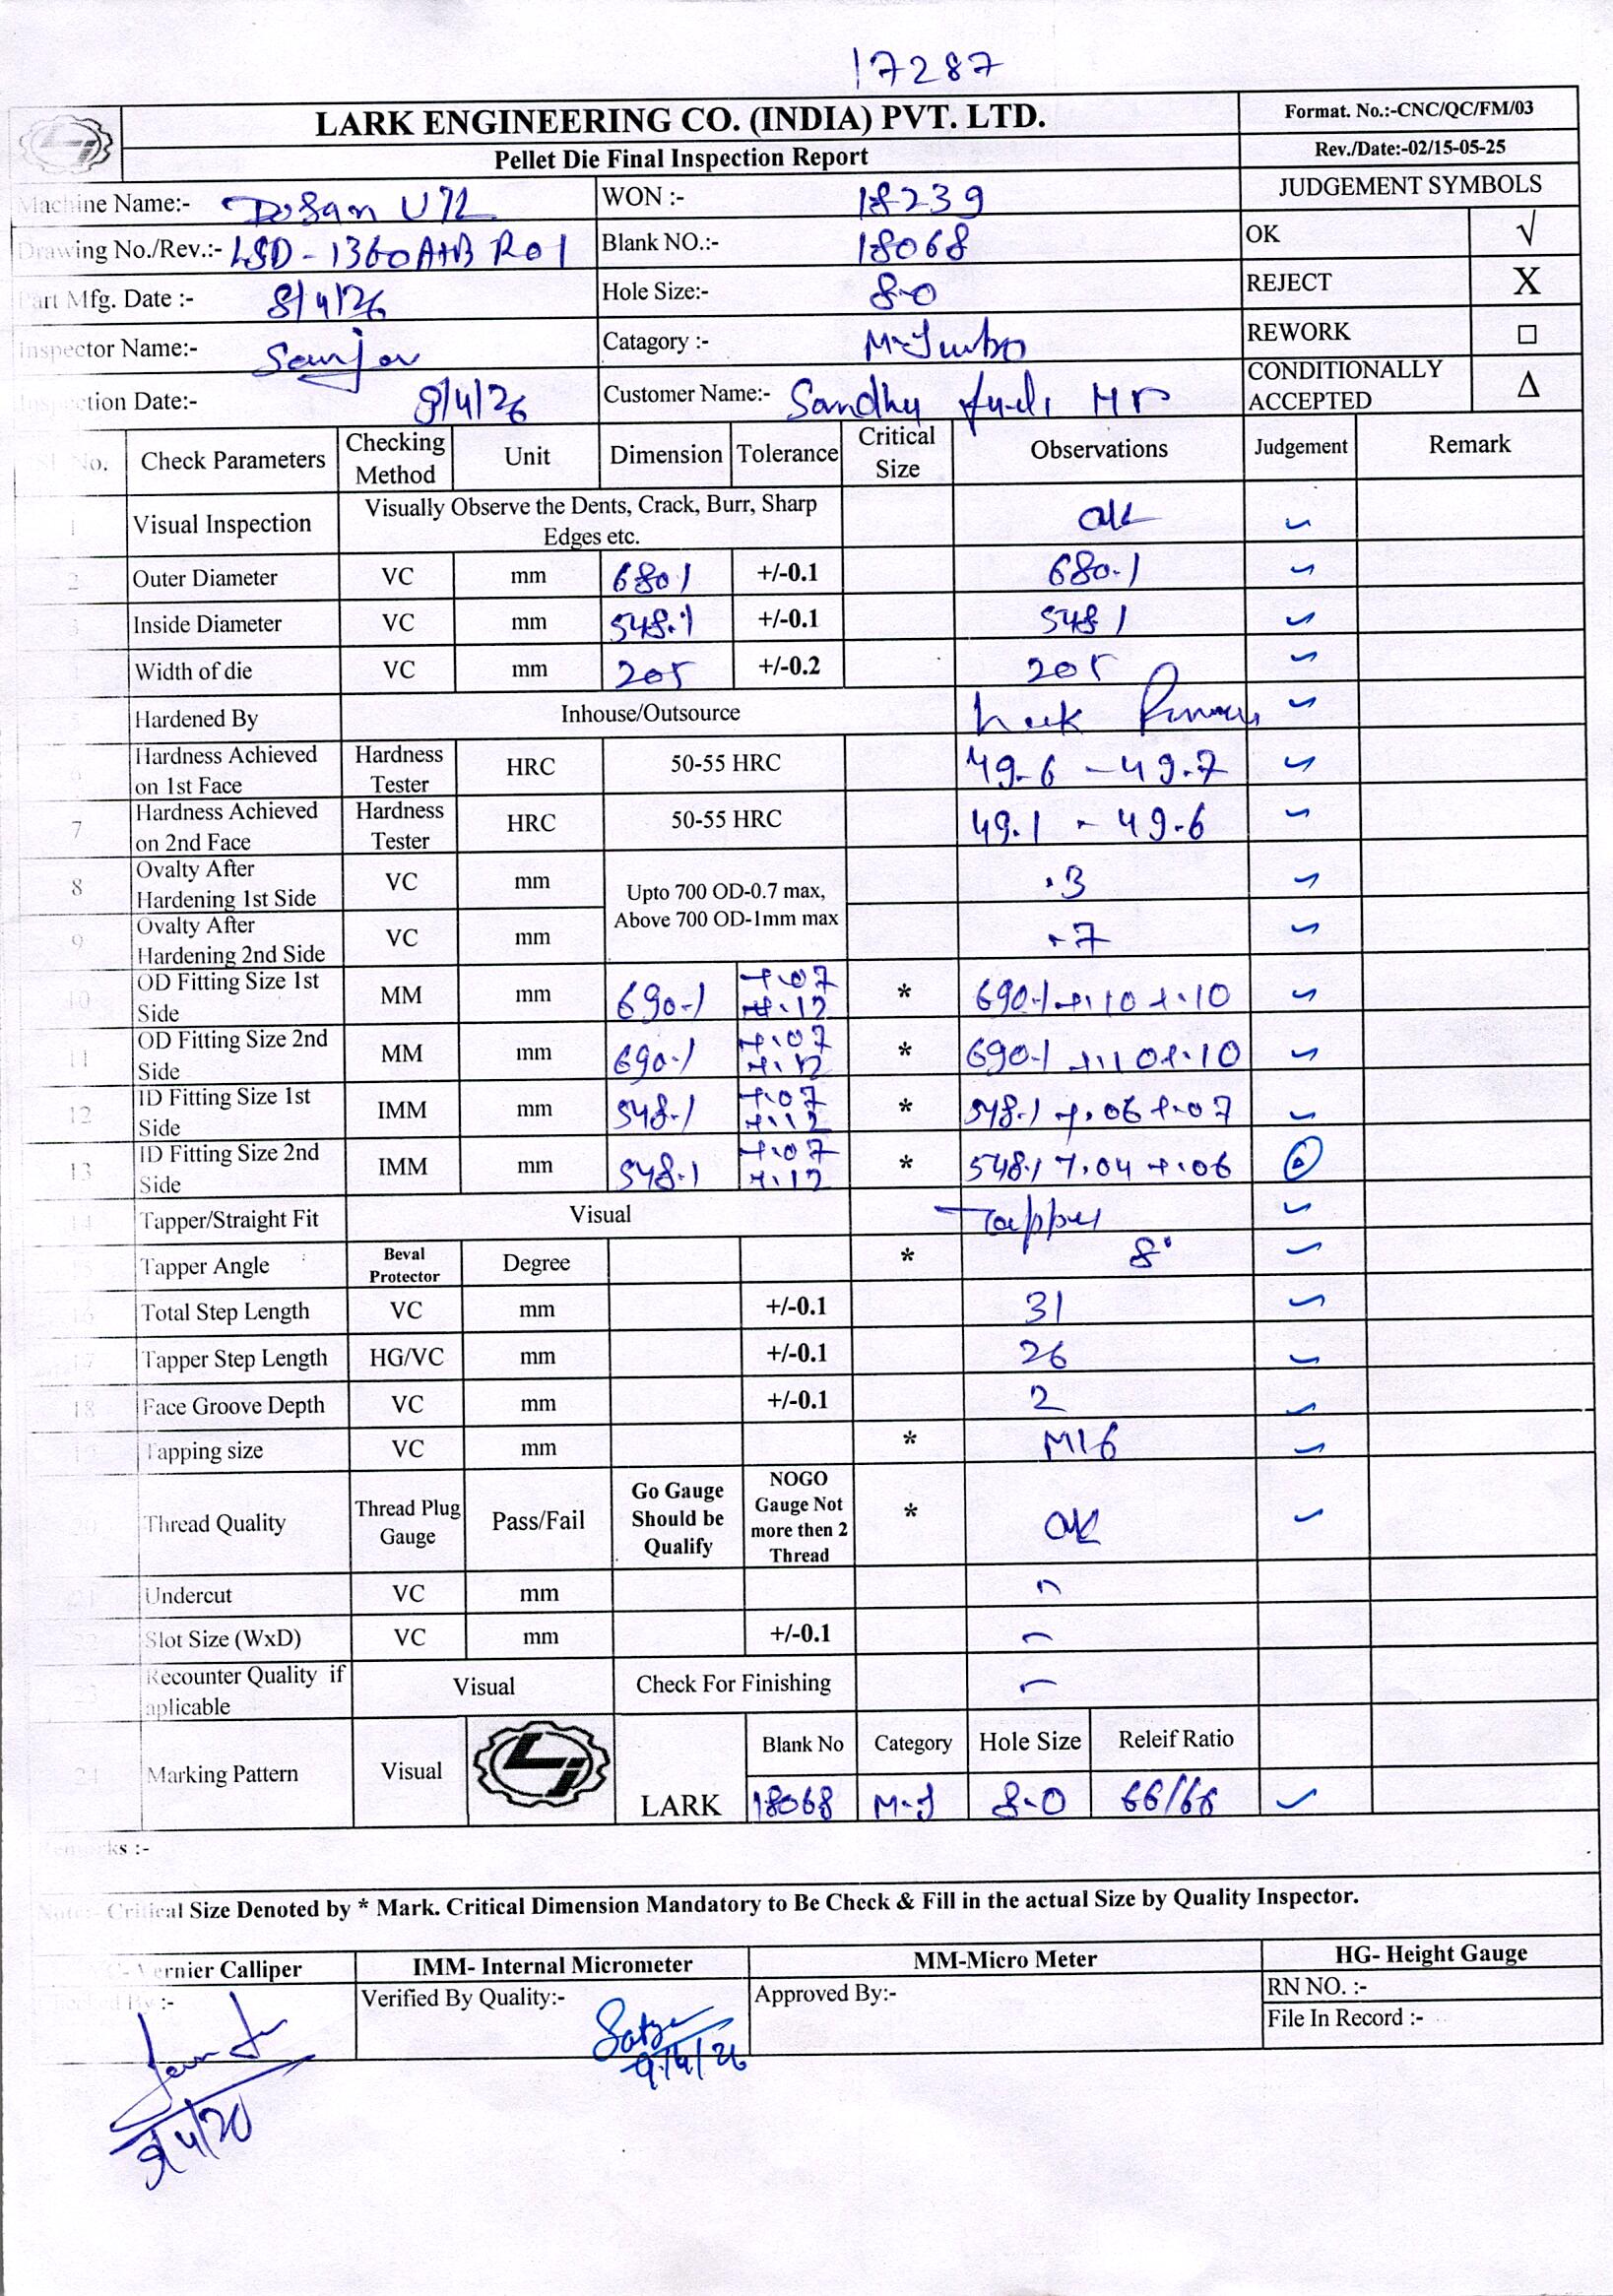 17287
LARK ENGINEERING CO. (INDIA) PVT. LTD.
Format. No.:-CNC/QC/FM/03
Pellet Die Final Inspection Report
Rev./Date:-02/15-05-25
Machine Name:- Dosan U72 WON :- 18239 JUDGEMENT SYMBOLS
Drawing No./Rev.:- LSD-1360A+B R01 Blank NO.:- 18068 OK √
Part Mfg. Date :- 8/4/26 Hole Size:- 8.0 REJECT X
Inspector Name:- Catagory :- M-Jumbo REWORK □
Inspection Date:- 8/4/26 Customer Name:- Sandhu CONDITIONALLY ACCEPTED Δ
No. Check Parameters Checking Method Unit Dimension Tolerance Critical Size Observations Judgement Remark
1 Visual Inspection Visually Observe the Dents, Crack, Burr, Sharp Edges etc. ok ✓
2 Outer Diameter VC mm 680.1 +/-0.1 680.1 ✓
3 Inside Diameter VC mm 548.1 +/-0.1 548.1 ✓
Width of die VC mm 205 +/-0.2 205 ✓
5 Hardened By Inhouse/Outsource ✓
6 Hardness Achieved on 1st Face Hardness Tester HRC 50-55 HRC 49.6 - 49.7 ✓
7 Hardness Achieved on 2nd Face Hardness Tester HRC 50-55 HRC 49.1 - 49.6 ✓
8 Ovalty After Hardening 1st Side VC mm Upto 700 OD-0.7 max, Above 700 OD-1mm max .3 ✓
9 Ovalty After Hardening 2nd Side VC mm .7 ✓
10 OD Fitting Size 1st Side MM mm 690.1 +.07 +.12 * 690.1 +.10 +.10 ✓
11 OD Fitting Size 2nd Side MM mm 690.1 +.07 +.12 * 690.1 +.10 +.10 ✓
12 ID Fitting Size 1st Side IMM mm 548.1 +.07 +.12 * 548.1 +.06 +.07 ✓
13 ID Fitting Size 2nd Side IMM mm 548.1 +.07 +.12 * 548.1 +.04 +.06 Δ
14 Tapper/Straight Fit Visual Tapper ✓
Tapper Angle Beval Protector Degree * 8° ✓
16 Total Step Length VC mm +/-0.1 31 ✓
17 Tapper Step Length HG/VC mm +/-0.1 26 ✓
18 Face Groove Depth VC mm +/-0.1 2 ✓
19 Tapping size VC mm * M16 ✓
20 Thread Quality Thread Plug Gauge Pass/Fail Go Gauge Should be Qualify NOGO Gauge Not more then 2 Thread * ok ✓
21 Undercut VC mm
Slot Size (WxD) VC mm +/-0.1
23 Recounter Quality if aplicable Visual Check For Finishing
24 Marking Pattern Visual LARK Blank No Category Hole Size Releif Ratio
18068 M-J 8.0 66/66 ✓
Remarks :-
Note:- Critical Size Denoted by * Mark. Critical Dimension Mandatory to Be Check & Fill in the actual Size by Quality Inspector.
Vernier Calliper IMM- Internal Micrometer MM-Micro Meter HG- Height Gauge
Checked By :- Verified By Quality:- Approved By:- RN NO. :-
File In Record :-
9/4/26